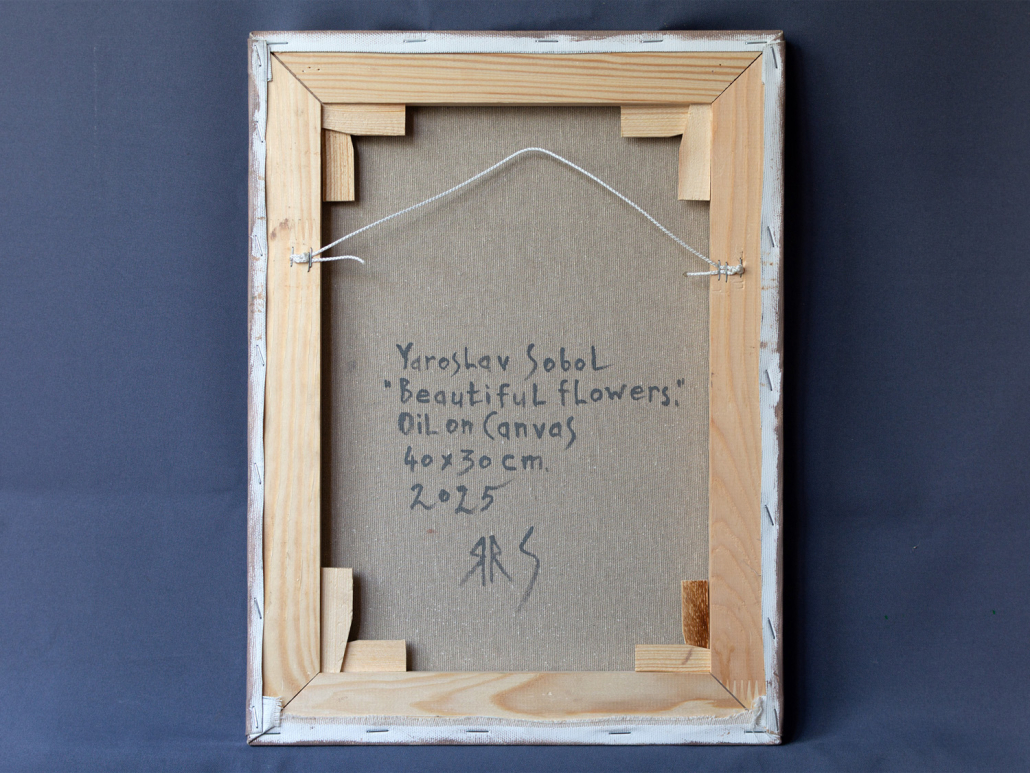 Yaroslav Sobol
"Beautiful flowers."
Oil on Canvas
40x30 cm.
2025
ЯR S